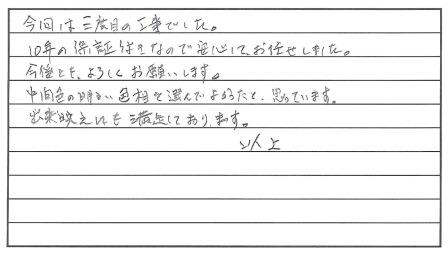 今回は三度目の工事でした。
10年の保証付きなので安心して、お任せしました。
今後とも、よろしくお願いします。
中間色の明るい色相を選んでよかったと、思っています。
出来映えにも満足しております。
以上